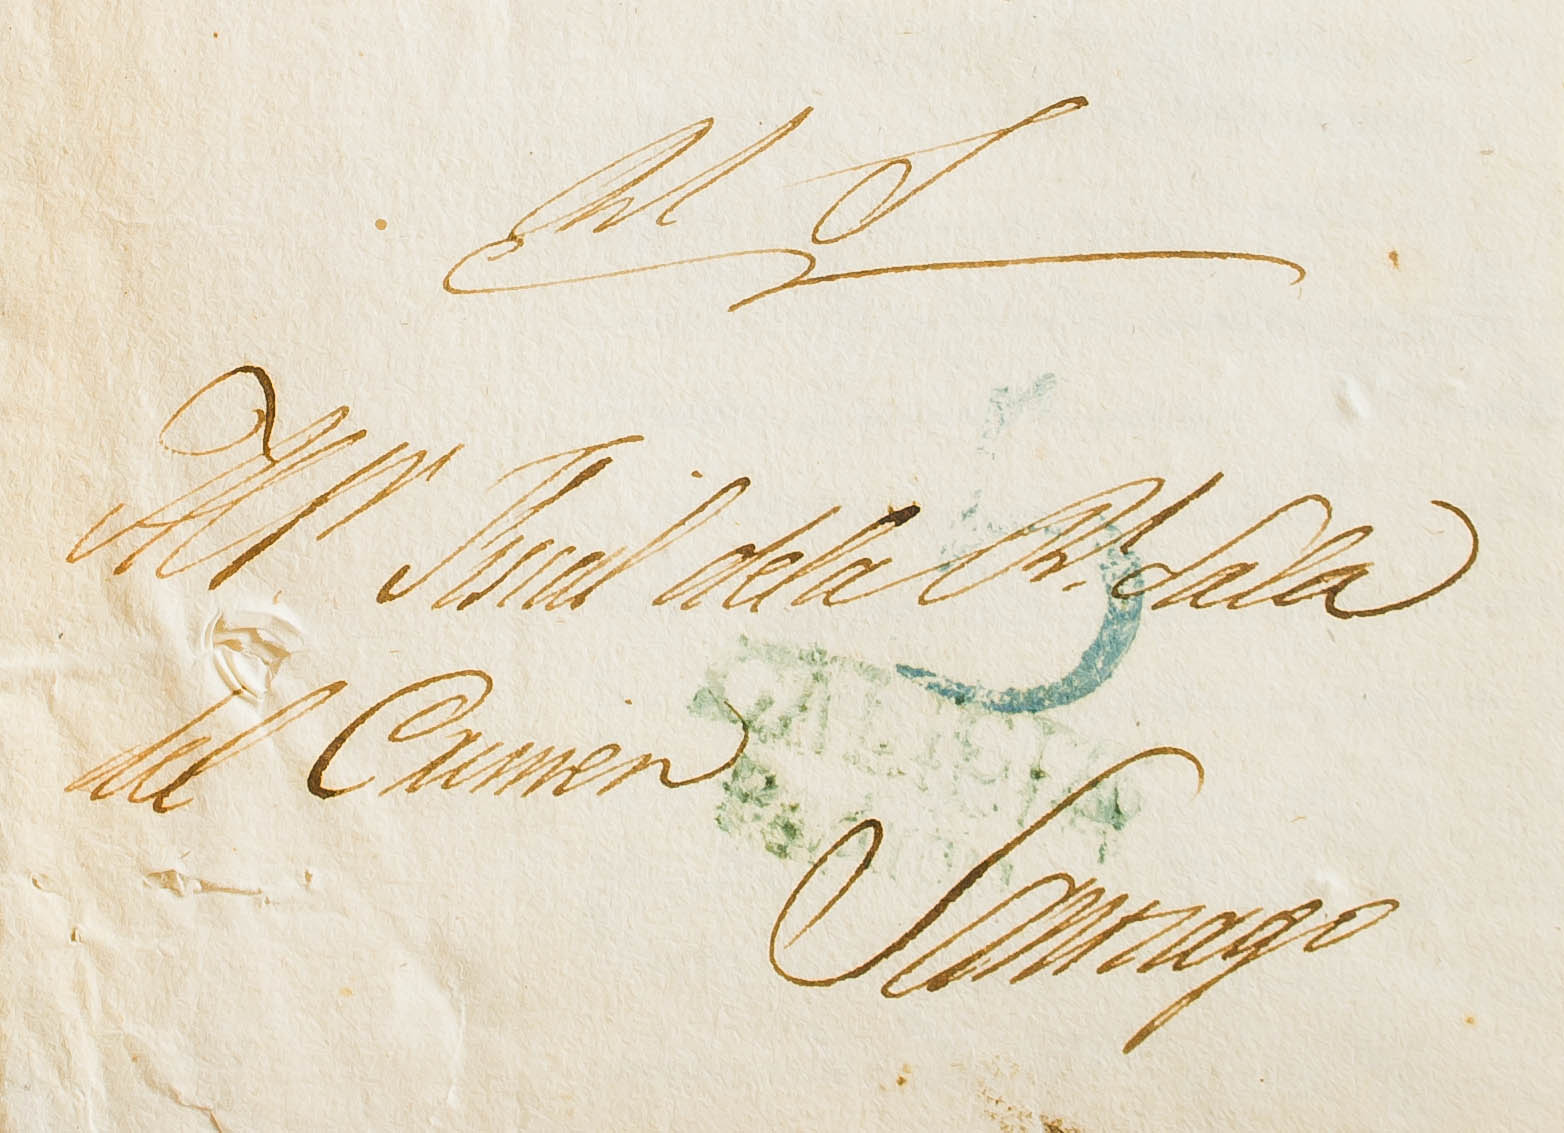 Rl S
Al Sr. Fiscal dela Rl. Sala
del Crimen
Santiago